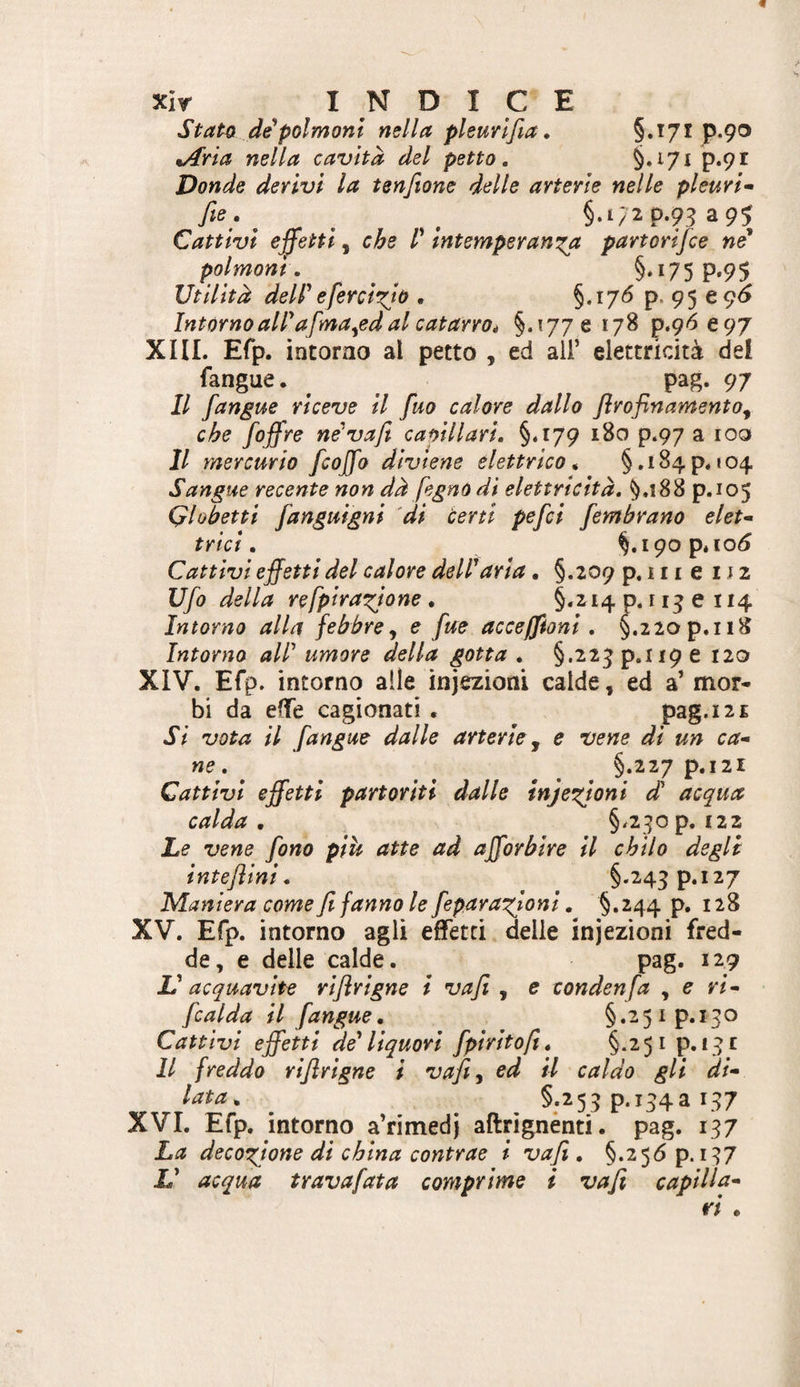 xiv INDICE
Stato de' polmoni nella pleurisia. §.171 p.90
Aria nella cavità del petto. §.171 p.91
Donde derivi la tensione delle arterie nelle pleuri-
sie. §.172 p.93 a 95
Cattivi effetti, che l' intemperanza partorisce ne'
polmoni. §.175 p.95
Utilità dell' esercizio. §.176 p. 95 e 96
Intorno all' asma, ed al catarro. §.177 e 178 p.96 e 97
XIII. Esp. intorno al petto, ed all' elettricità del
sangue. pag. 97
Il sangue riceve il suo calore dallo strofinamento,
che soffre ne' vasi capillari. §.179 180 p.97 a 100
Il mercurio scosso diviene elettrico. §.184 p.104
Sangue recente non dà segno di elettricità. §.188 p.105
Globetti sanguigni di certi pesci sembrano elet-
trici. §.190 p.106
Cattivi effetti del calore dell' aria. §.209 p.111 e 112
Uso della respirazione. §.214 p.113 e 114
Intorno alla febbre, e sue accessioni. §.220 p.118
Intorno all' umore della gotta. §.223 p.119 e 120
XIV. Esp. intorno alle injezioni calde, ed a' mor-
bi da esse cagionati. pag.121
Si vota il sangue dalle arterie, e vene di un ca-
ne. §.227 p.121
Cattivi effetti partoriti dalle injezioni d' acqua
calda. §.230 p. 122
Le vene sono più atte ad assorbire il chilo degli
intestini. §.243 p.127
Maniera come si fanno le separazioni. §.244 p. 128
XV. Esp. intorno agli effetti delle injezioni fred-
de, e delle calde. pag. 129
L' acquavite ristrigne i vasi, e condensa, e ri-
scalda il sangue. §.251 p.130
Cattivi effetti de' liquori spiritosi. §.251 p.131
Il freddo ristrigne i vasi, ed il caldo gli di-
lata. §.253 p.134 a 137
XVI. Esp. intorno a' rimedj astrignenti. pag. 137
La decozione di china contrae i vasi. §.256 p.137
L' acqua travasata comprime i vasi capilla-
ri.